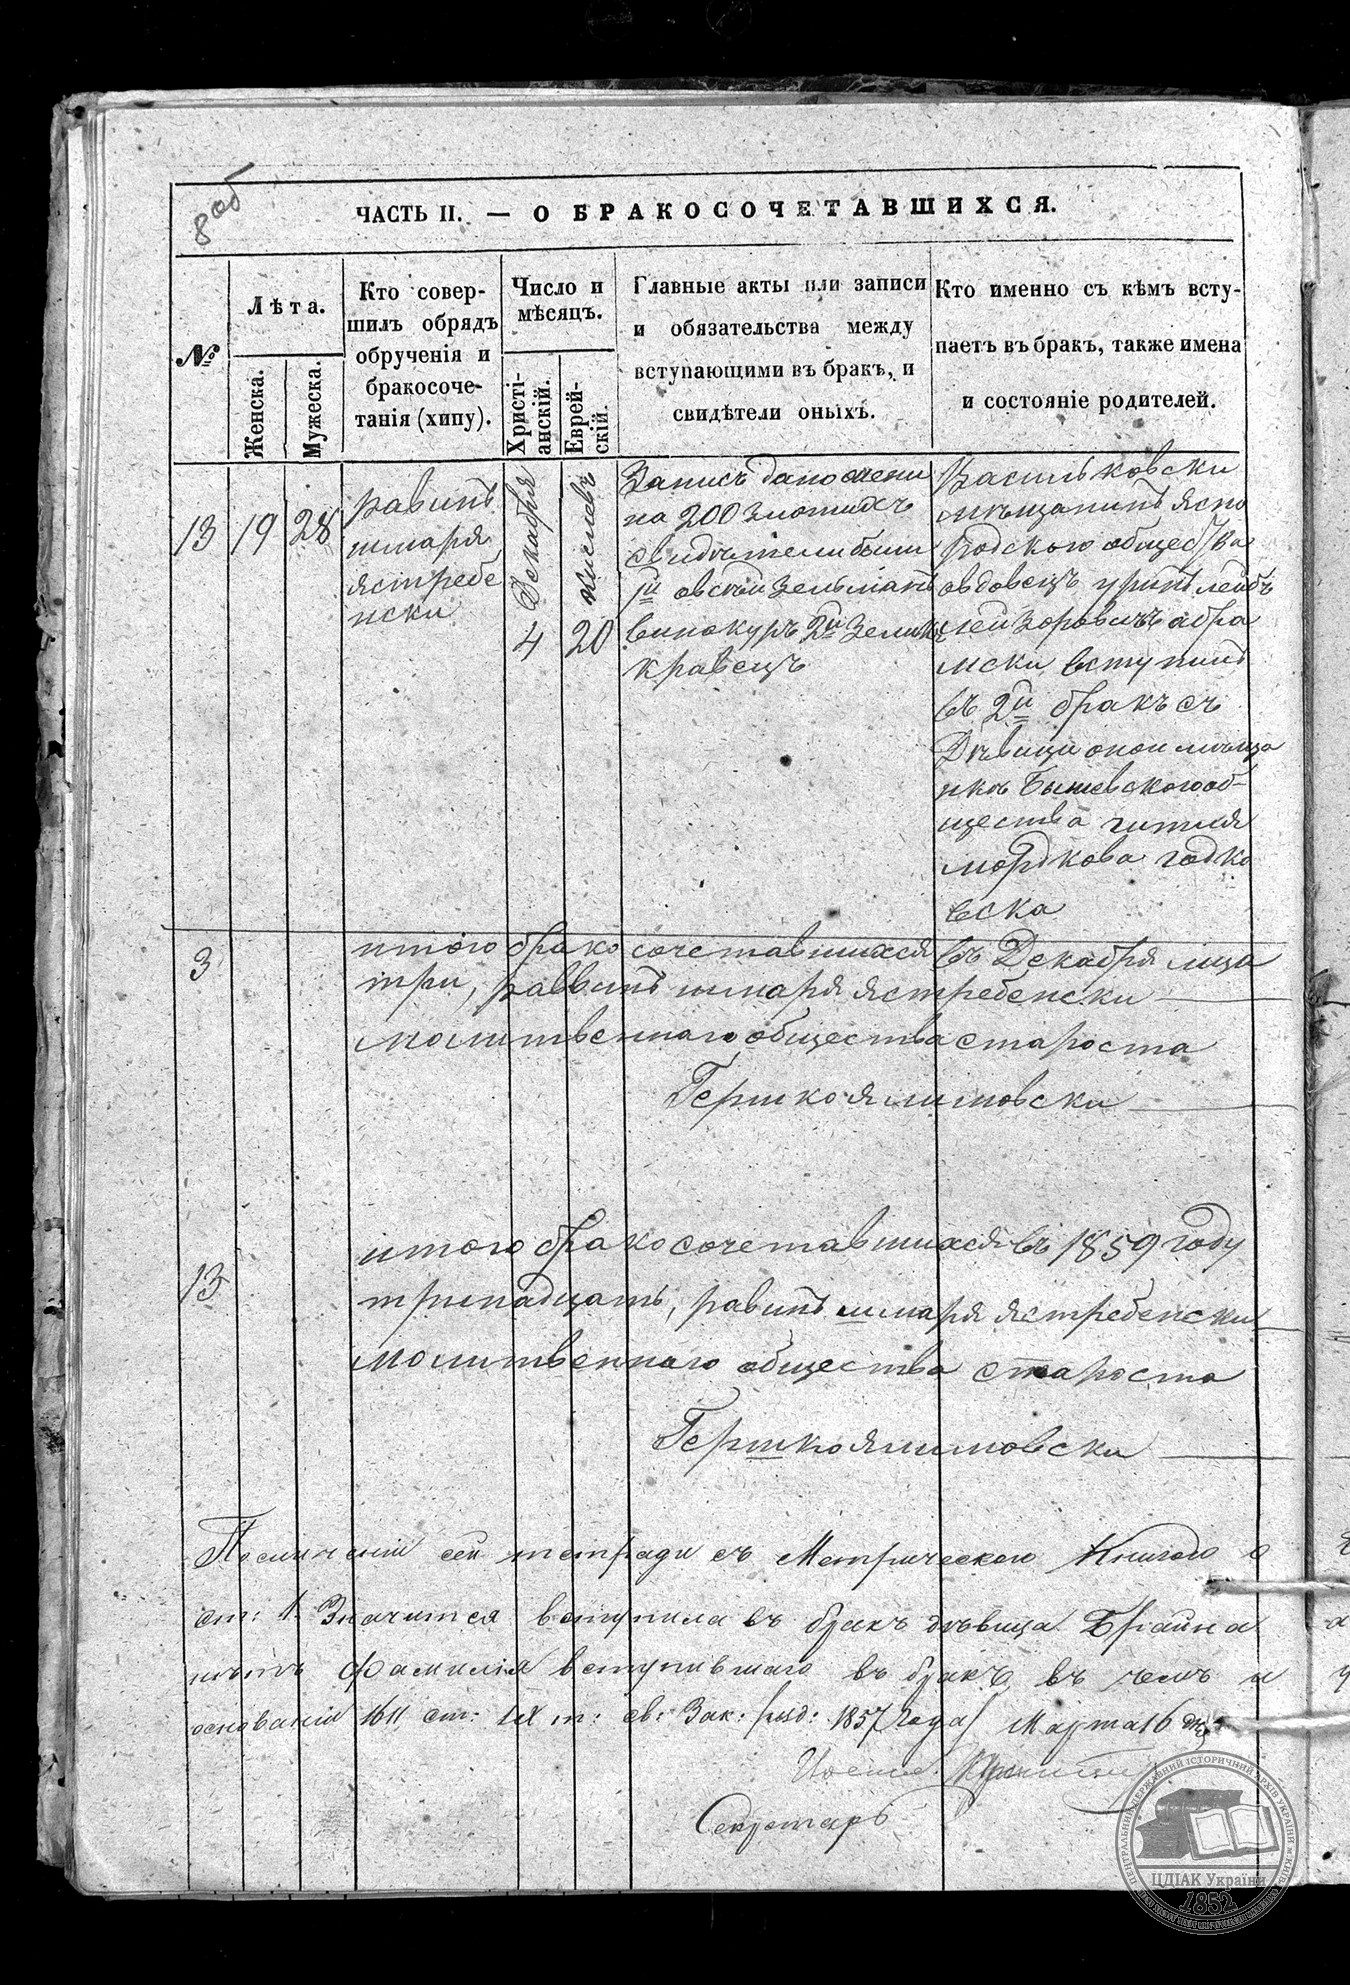 8 об
ЧАСТЬ II. — О БРАКОСОЧЕТАВШИХСЯ.
№
Лѣта.
Женска.
Мужеска.
Кто совер-
шилъ обрядъ
обрученія и
бракосоче-
танія (хипу).
Число и
мѣсяцъ.
Христі-
анскій.
Еврей-
скій.
Главные акты или записи
и обязательства между
вступающими въ бракъ, и
свидѣтели оныхъ.
Кто именно съ кѣмъ всту-
паетъ въ бракъ, также имена
и состояніе родителей.
13
19
28
равинъ
шмаря
ястребе
нски
Декабря
4
кислевъ
20
Запись дано жени
на 200 злотихъ
свидѣтели были
1й овсѣй зельманъ
винокуръ 2й зеликъ
кравецъ
Васильковски
мѣщанинъ ясно
родского общества
овдовецъ уринъ лейбъ
лейзоровичъ абра
мски вступилъ
въ 2й бракъ съ
Дѣвици оной мѣща
нкѣ Бышевского об-
щества гитля
мордкова годко
вска
3
итого бракосочетавшихся въ Декабря мца
три, раввинъ шмаря ястребенски
молитвенного общества староста
Гершко ялимовски
13
итого бракосочетавшихся въ 1859 году
тринадцать, равинъ шмаря ястребенски
молитвенного общества староста
Гершко ялимовски
сей тетради съ Метрическою Книгою о
ст: 1. Значится вступила въ бракъ дѣвица Брайна
нѣтъ фамилія вступившаго въ бракъ, въ чемъ и
основаніи 1611 ст: IX т: св: Зак: /изд: 1857 года/ Марта 16 дня
Секретарь
ЦЕНТРАЛЬНИЙ ДЕРЖАВНИЙ ІСТОРИЧНИЙ АРХІВ УКРАЇНИ м. КИЇВ
ЦДІАК України
1852